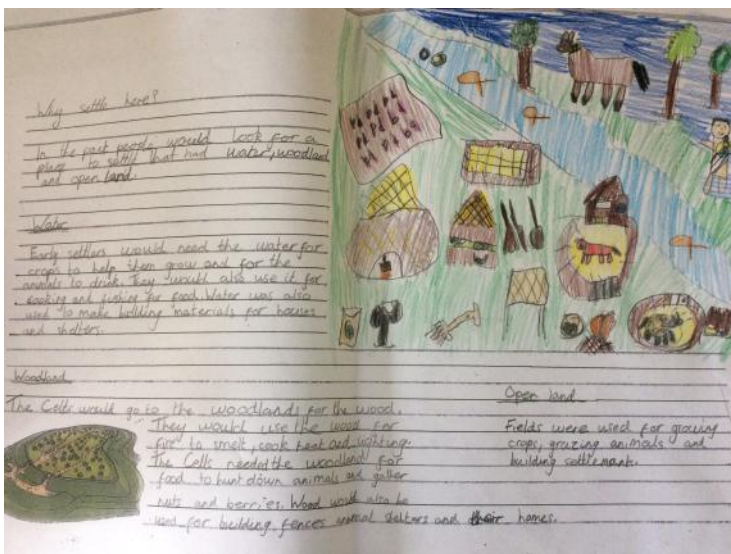 Why settle here?
In the past people would look for a
place to settle that had water, woodland
and open land.
Water
Early settlers would need the water for
crops to help them grow and for the
animals to drink. They would also use it for
cooking and fishing for food. Water was also
used to make building materials for houses
and shelters.
Woodland
The Celts would go to the woodlands for the wood.
They would use the wood for
fire to smelt, cook heat and lighting.
The Celts needed the woodland for
food to hunt down animals and gather
nuts and berries. Wood would also be
used for building fences animal shelters and their homes.
Open land
Fields were used for growing
crops, grazing animals and
building settlements.